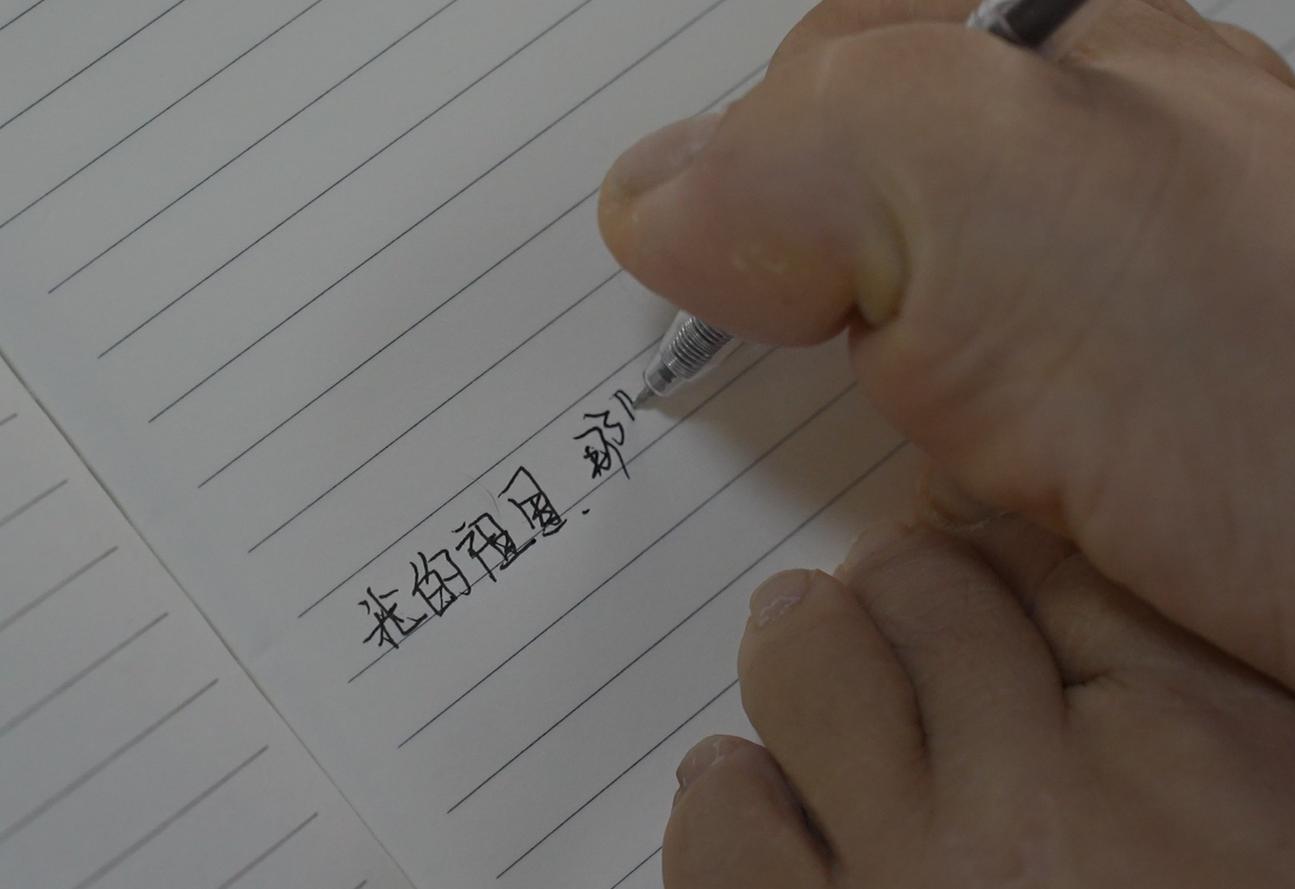 我的祖国.那